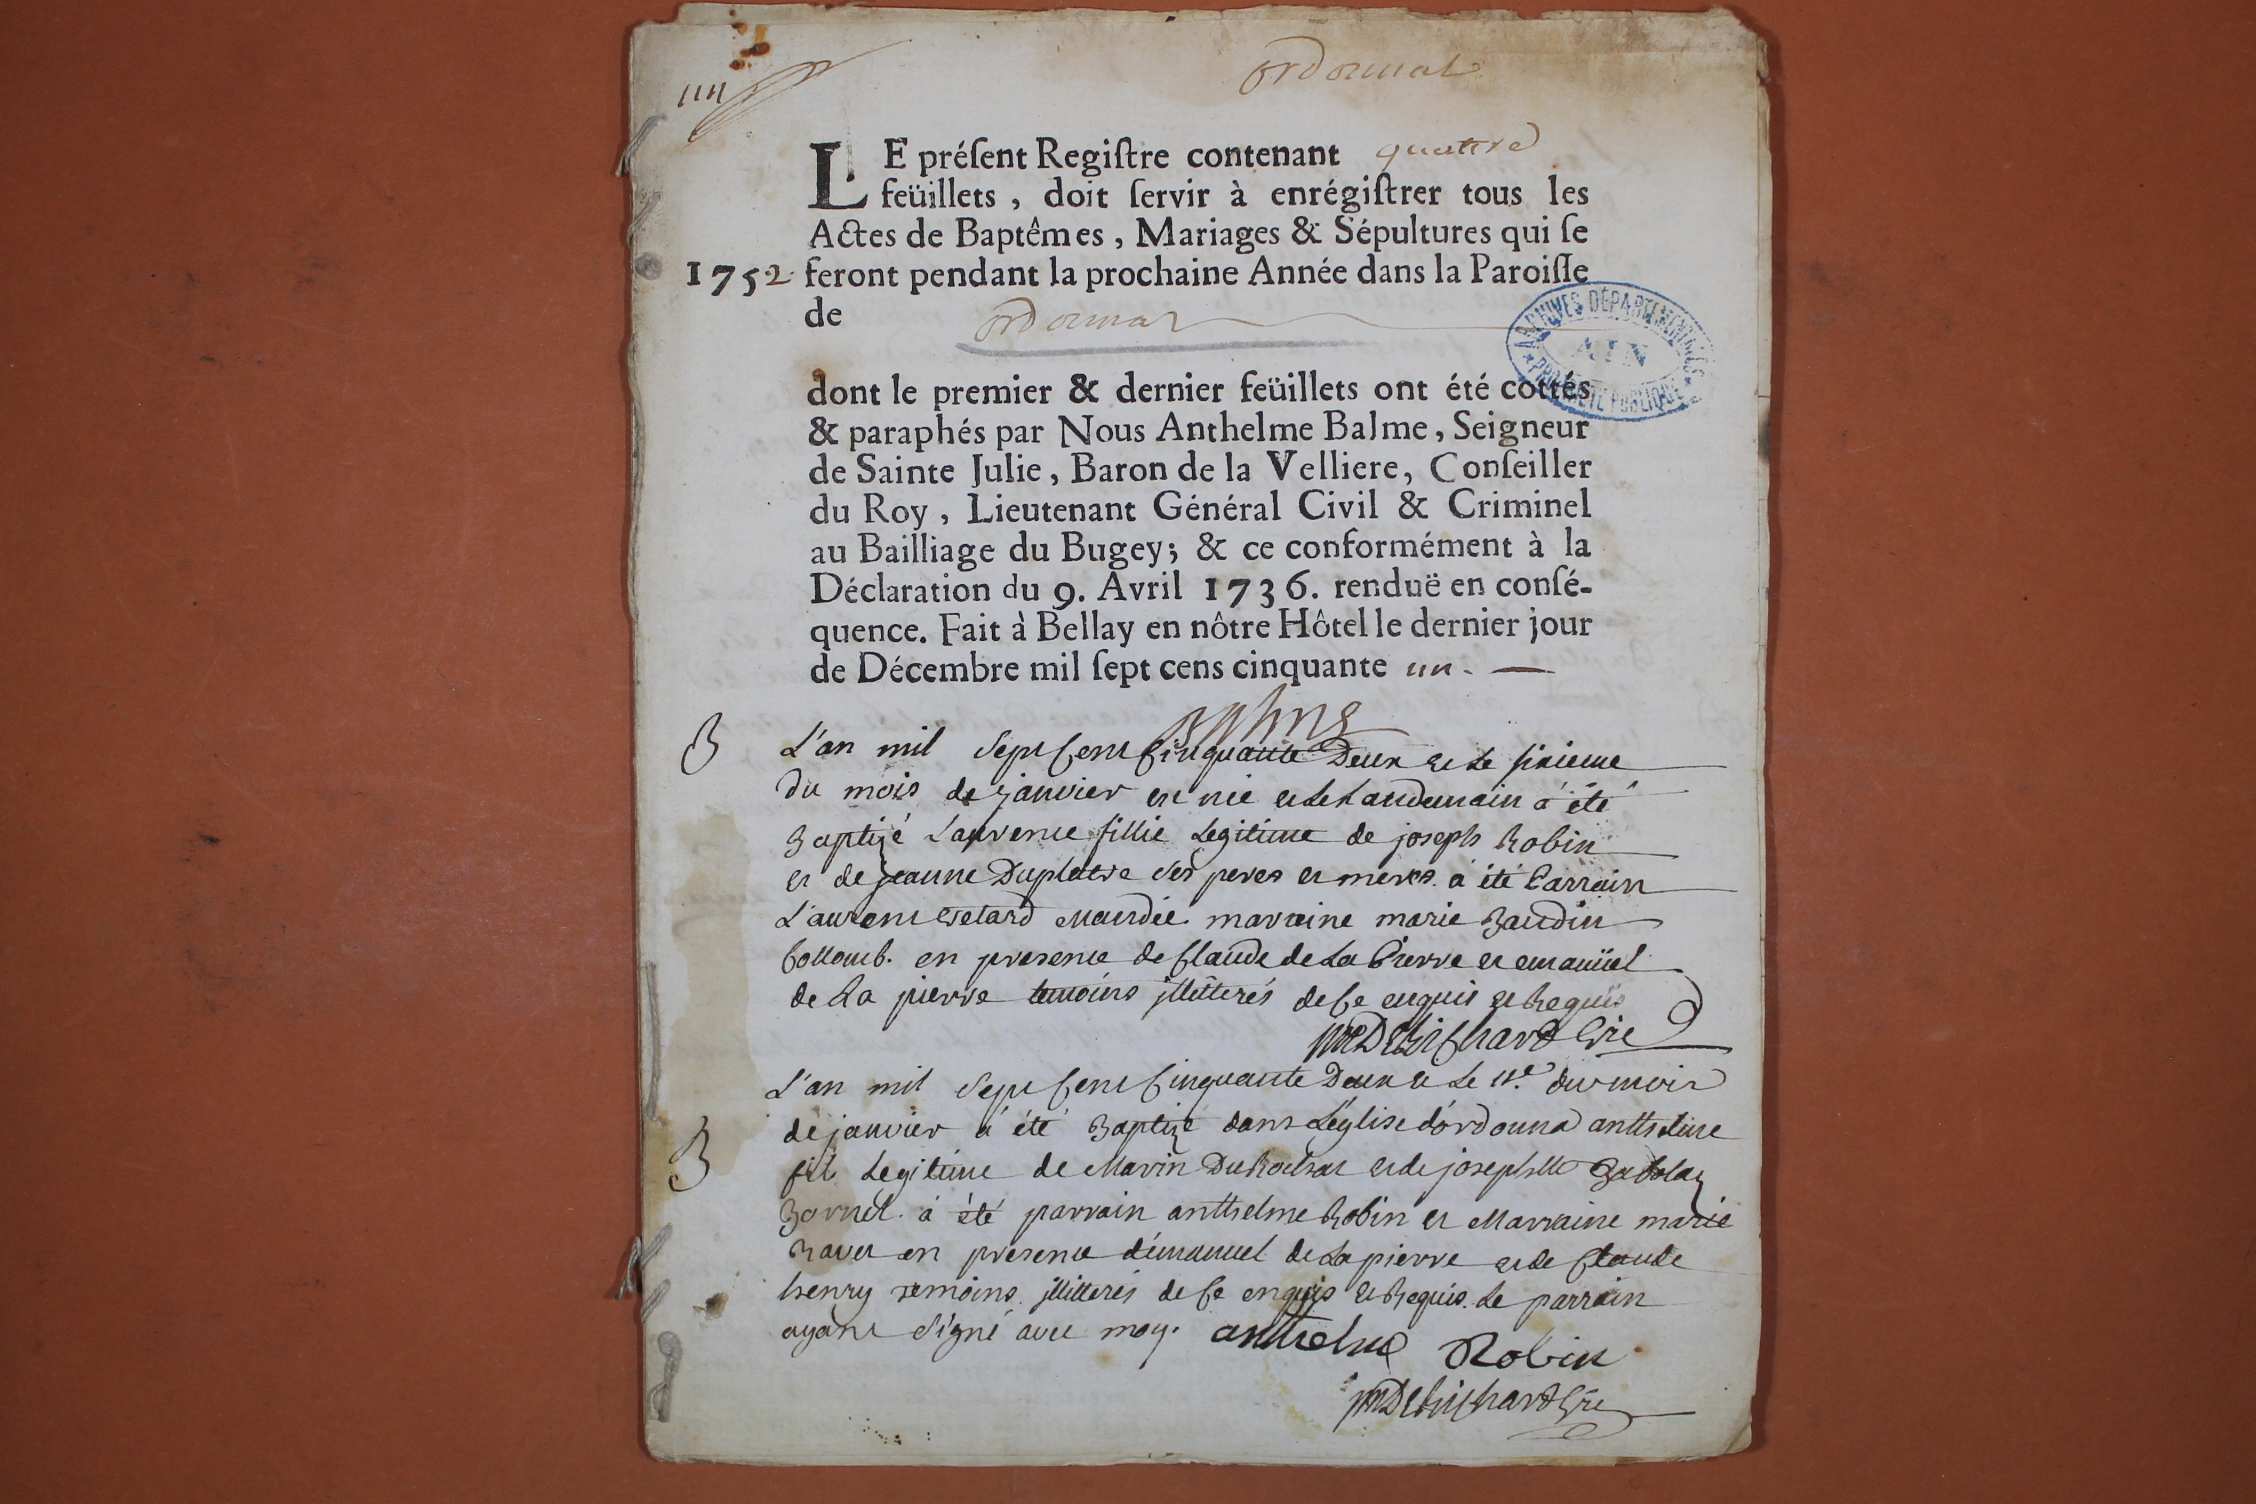 ordonnat
LE préſent Regiſtre contenant quattre
feüillets, doit ſervir à enrégiſtrer tous les
Actes de Baptêmes, Mariages & Sépultures qui ſe
1752 feront pendant la prochaine Année dans la Paroiſſe
de ordonnat
ARCHIVES DÉPARTEMENTALES
AIN
PROPRIÉTÉ PUBLIQUE
dont le premier & dernier feüillets ont été cottés
& paraphés par Nous Anthelme Balme, Seigneur
de Sainte Julie, Baron de la Velliere, Conſeiller
du Roy, Lieutenant Général Civil & Criminel
au Bailliage du Bugey; & ce conformément à la
Déclaration du 9. Avril 1736. renduë en conſé-
quence. Fait à Bellay en nôtre Hôtel le dernier jour
de Décembre mil ſept cens cinquante un. —
Balme
B L'an mil Sept Cent Cinquante Deux et Le sixieme
du mois de janvier est née et Le Landemain a été
Baptizé Laurence fillie Legitime de joseph Robin
et de jeanne Duplatre ses peres et meres. a été Parrain
L'aurent maraine marie Baudin
Collomb. en presence de Claude de La Pierre et emanüel
de La pierre temoins jllitterés de Ce enquis et Requis
L'an mil Sept Cent Cinquante Deux et Le 11.e du mois
B de janvier a été Baptizé dans L'église d'ordonna anthelme
fils Legitime de Marin et de josephte
Bornet. a été parrain anthelme Robin et Marraine marie
Ravet en presence d'emanuel de La pierre et de Claude
henry temoins jllitterés de Ce enquis et Requis. Le parrain
ayant signé avec moy. anthelme Robin